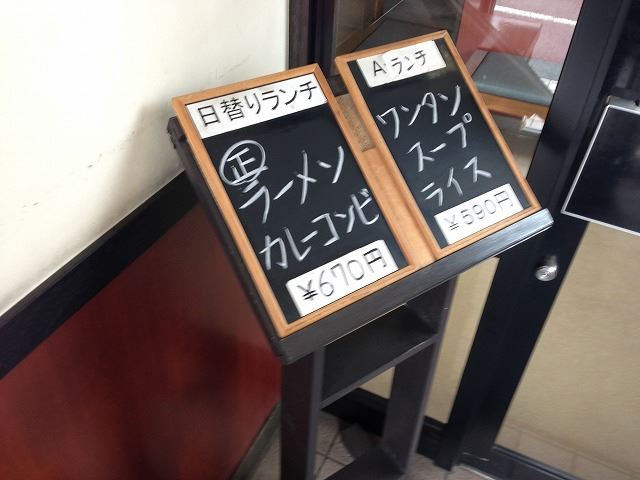 日替りランチ
正
ラーメン
カレーコンビ
¥670円
A ランチ
ワンタン
スープ
ライス
¥590円